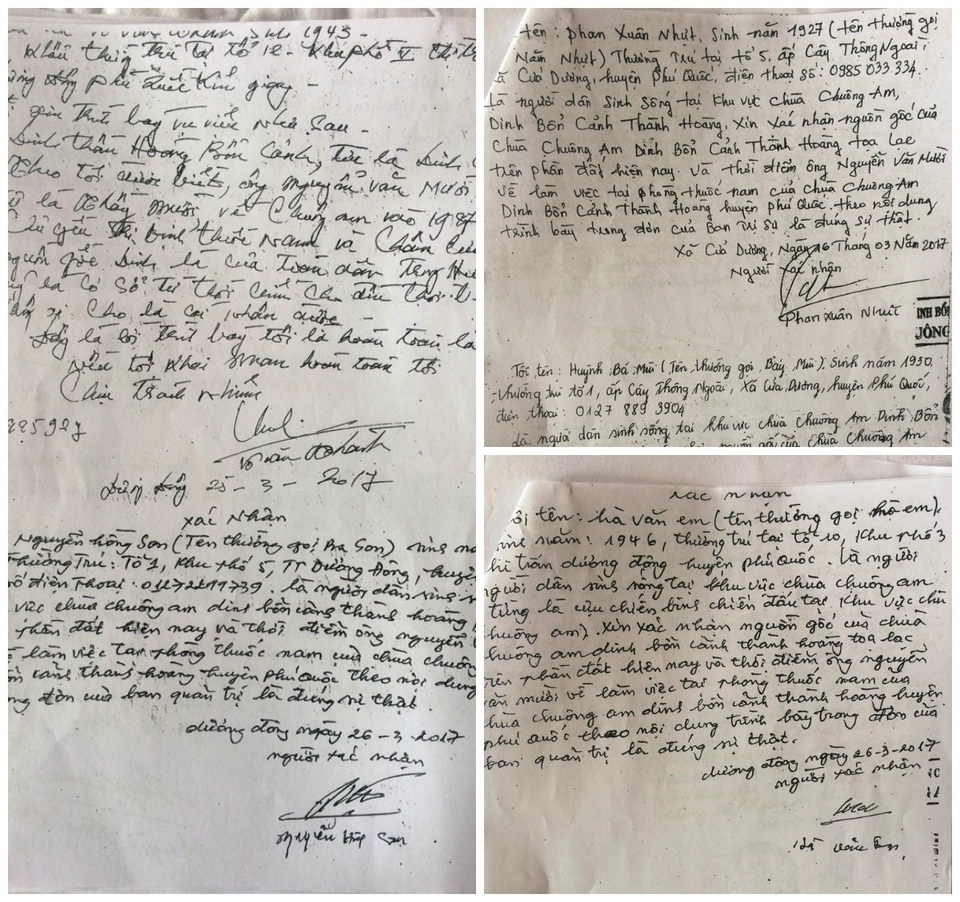 sinh năm 1943 -
khẩu thường trú tại tổ 12 - Khu phố V thị tr
Phú Quốc Kiên giang -
xin trình bày vụ việc như sau -
Đình thần Hoàng Bổn Cảnh, tức là Dinh
theo tôi được biết, ông nguyễn văn mười
là thầy mười, về Chuông am vào 1987
chủ yếu thì Dinh thuốc nam và Châm cứu
nguồn gốc Dinh là của toàn dân
là cơ sở từ thời
cho là cái nhân được -
Đây là lời trình bày tôi là hoàn toàn là
nếu tôi khai man hoàn toàn tôi
chịu trách nhiệm
285927
Võ văn Thành
Dương Đông 25 - 3 - 2017
xác Nhận
Nguyễn hồng Sơn (Tên thường gọi Ba Sơn) sinh nă
thường Trú: Tổ 1, Khu Phố 5, TT Dương Đông, huyện
số điện Thoại: 01272199739. là người dân sinh s
vực chùa chuông am dinh bổn cảnh thành hoàng
phần đất hiện nay và thời điểm ông nguyễn
về làm việc tại phòng thuốc nam của chùa chuông
bổn cảnh thành hoàng huyện phú Quốc theo nội dung
trong đơn của ban quản trị là đúng sự thật.
dương đông ngày 26-3-2017
người xác nhận
nguyễn hồng Sơn
tên: Phan Xuân Nhựt, Sinh năm 1927 (tên thường gọi
Năm Nhựt) Thường Trú tại tổ 5, ấp Cây Thông Ngoài,
xã Cửa Dương, huyện Phú Quốc, điện thoại số: 0985 033 334.
Là người dân Sinh Sống tại khu vực chùa Chuông Am,
Dinh Bổn Cảnh Thành Hoàng, Xin Xác nhận nguồn gốc của
Chùa Chuông Am Dinh Bổn Cảnh Thành Hoàng tọa lạc
trên phần đất hiện nay. Và thời điểm ông Nguyễn Văn Mười
về làm việc tại phòng thuốc nam của chùa Chuông Am
Dinh Bổn Cảnh Thành Hoàng huyện phú Quốc. theo nội dung
trình bày trong đơn của Ban Trị Sự là đúng sự thật.
Xã Cửa Dương, Ngày 26 Tháng 03 Năm 2017
Người Xác nhận
Phan Xuân Nhựt
INH BỔ
JÔNG
Tôi tên: Huỳnh Bá Mũi (Tên thường gọi, Bảy Mũi). Sinh năm 1930,
thường trú tổ 1, ấp Cây Thông Ngoài, Xã Cửa Dương, huyện Phú Quốc,
điện thoại: 0127 889 3904
Là người dân sinh sống tại khu vực chùa Chuông Am Dinh Bổn
của chùa Chuông Am
xác nhận
ôi tên: hà văn em (tên thường gọi em)
sinh năm: 1946, thường trú tại tổ 10, Khu phố 3
thị trấn dương đông huyện phú Quốc. là người
người dân sinh sống tại khu vực chùa chuông am
từng là cựu chiến binh chiến đấu tại khu vực chù
chuông am). xin xác nhận nguồn gốc của chùa
chuông am dinh bổn cảnh thành hoàng tọa lạc
trên phần đất hiện nay và thời điểm ông nguyễn
văn mười về làm việc tại phòng thuốc nam của
chùa chuông am dinh bổn cảnh thành hoàng huyện
phú quốc theo nội dung trình bày trong đơn của
ban quản trị là đúng sự thật.
dương đông ngày 26-3-2017
người xác nhận
hà văn Em